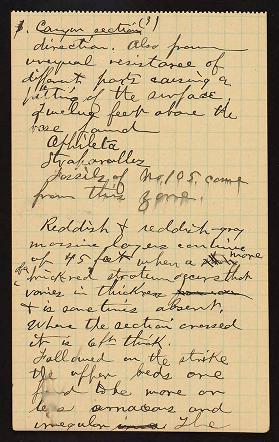 Canyon section (3)
direction. Also from
unequal resistance of
different parts causing a
pitting of the surface.
Twelve feet above the
base found
Ophileta
Straparollus
Fossils of No. 105 came
from this zone.
Reddish & reddish-gry
massive layers continue
up 45 feet when a more
brick red stratum occurs that
varies in thickness
& is sometimes absent.
Where the section crossed
it is 6 ft thick.
Followed on the strike
the upper beds are
found to be more or
less arenaceous and
irregular The